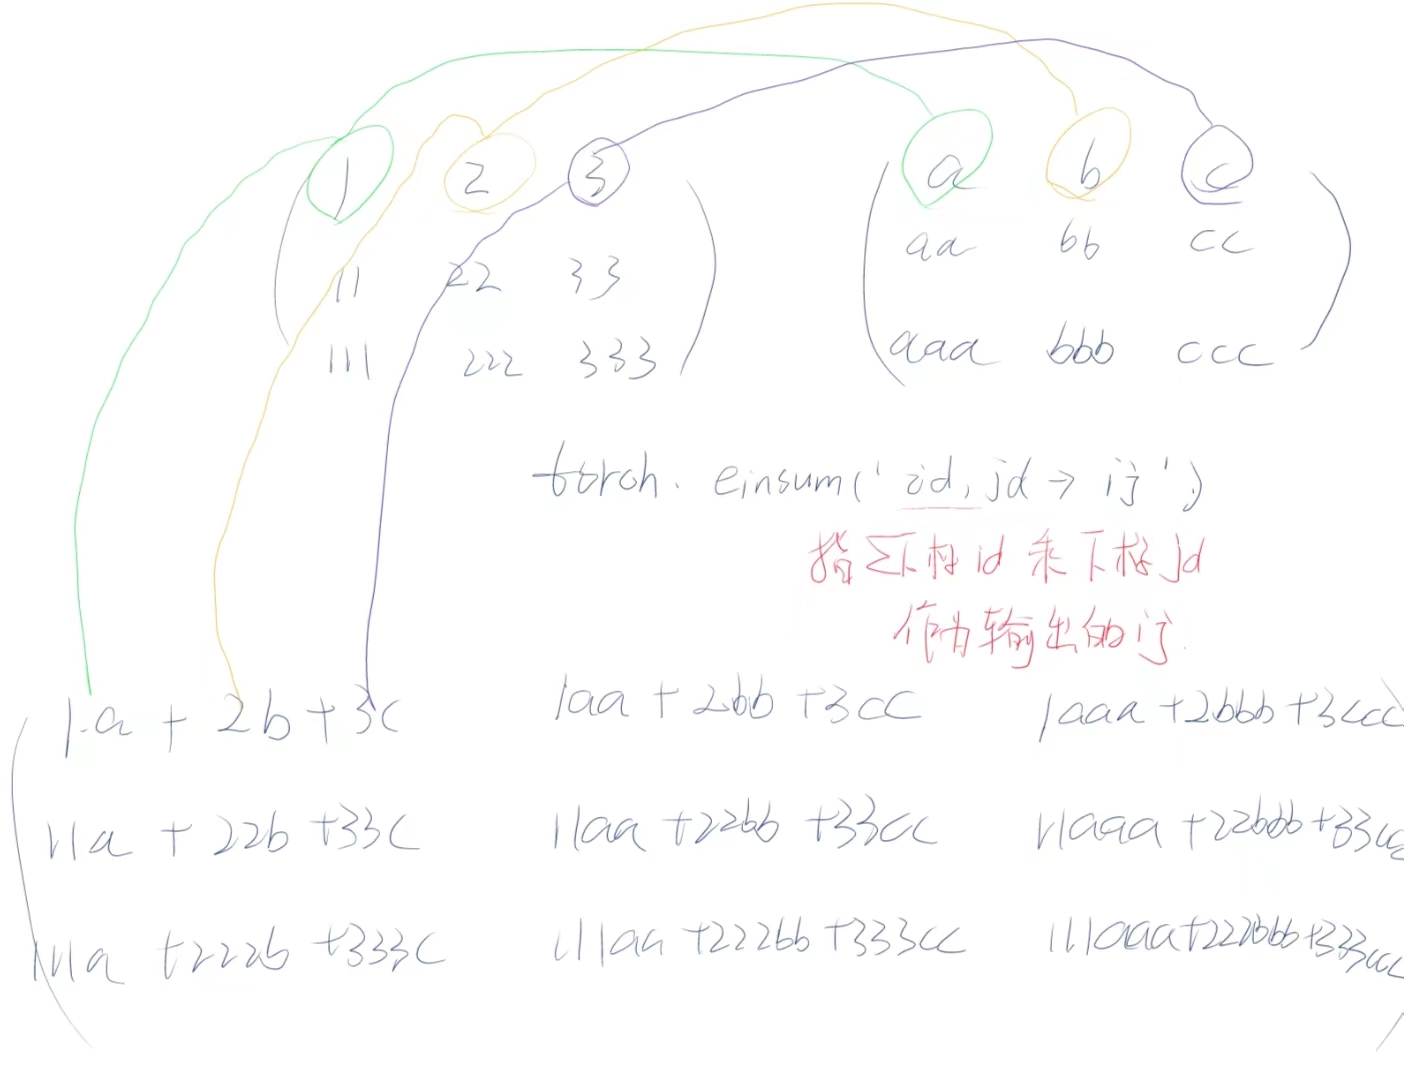 1 2 3 a b c
11 22 33 aa bb cc
111 222 333 aaa bbb ccc
torch. einsum('id, jd → ij')
指下标id乘下标jd
作为输出的ij.
1·a + 2b + 3c 1aa + 2bb + 3cc 1aaa + 2bbb + 3ccc
11a + 22b + 33c 11aa + 22bb + 33cc 11aaa + 22bbb + 33cc
111a + 222b + 333c 111aa + 222bb + 333cc 111aaa + 222bbb + 333ccc